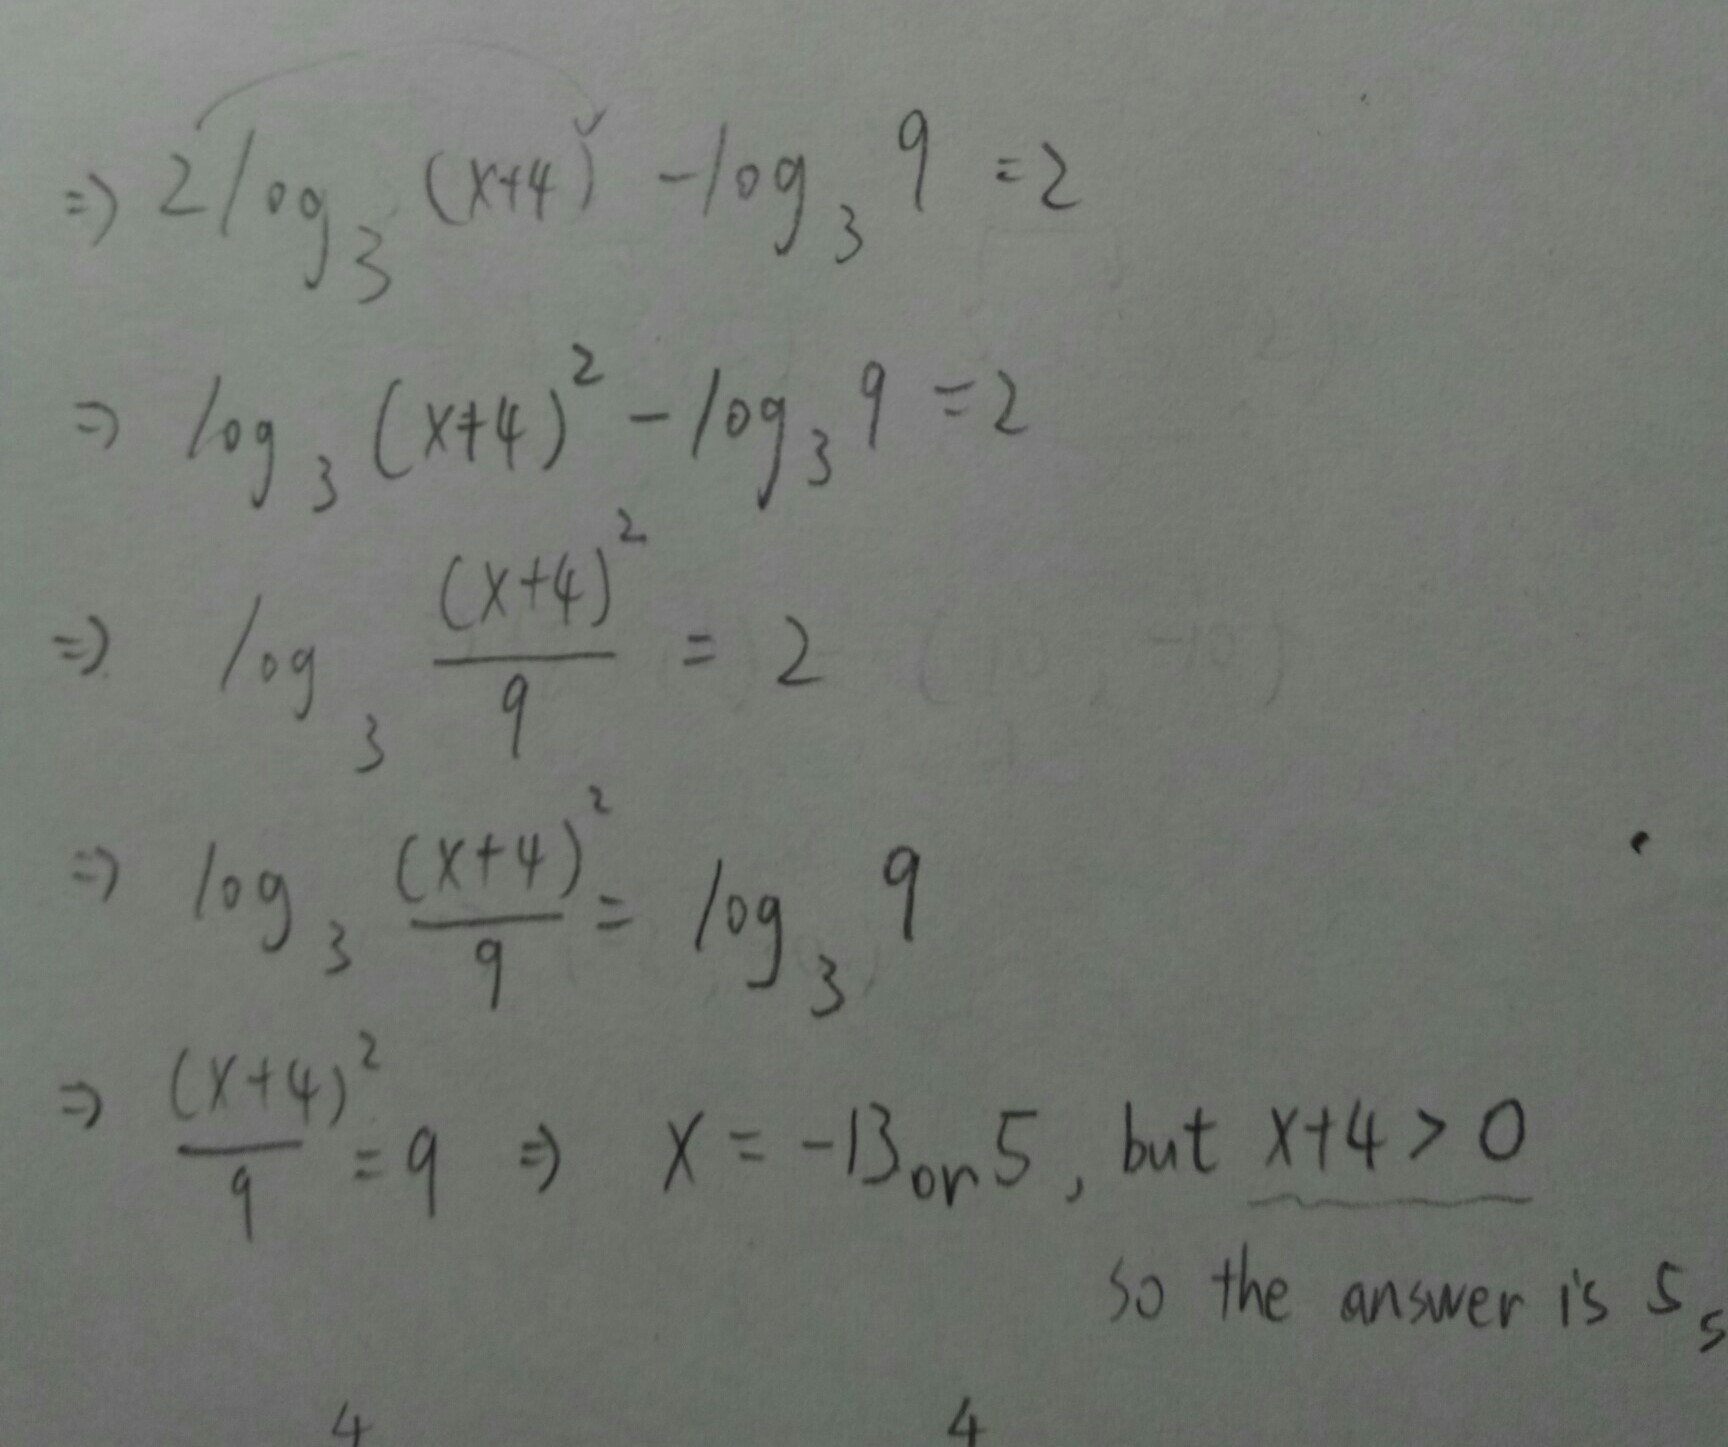 ⇒ 2log₃(x+4) - log₃9 = 2
⇒ log₃(x+4)² - log₃9 = 2
⇒ log₃ (x+4)²/9 = 2
⇒ log₃ (x+4)²/9 = log₃9
⇒ (x+4)²/9 = 9 ⇒ x = -13 or 5, but x+4 > 0
so the answer is 5
4 4